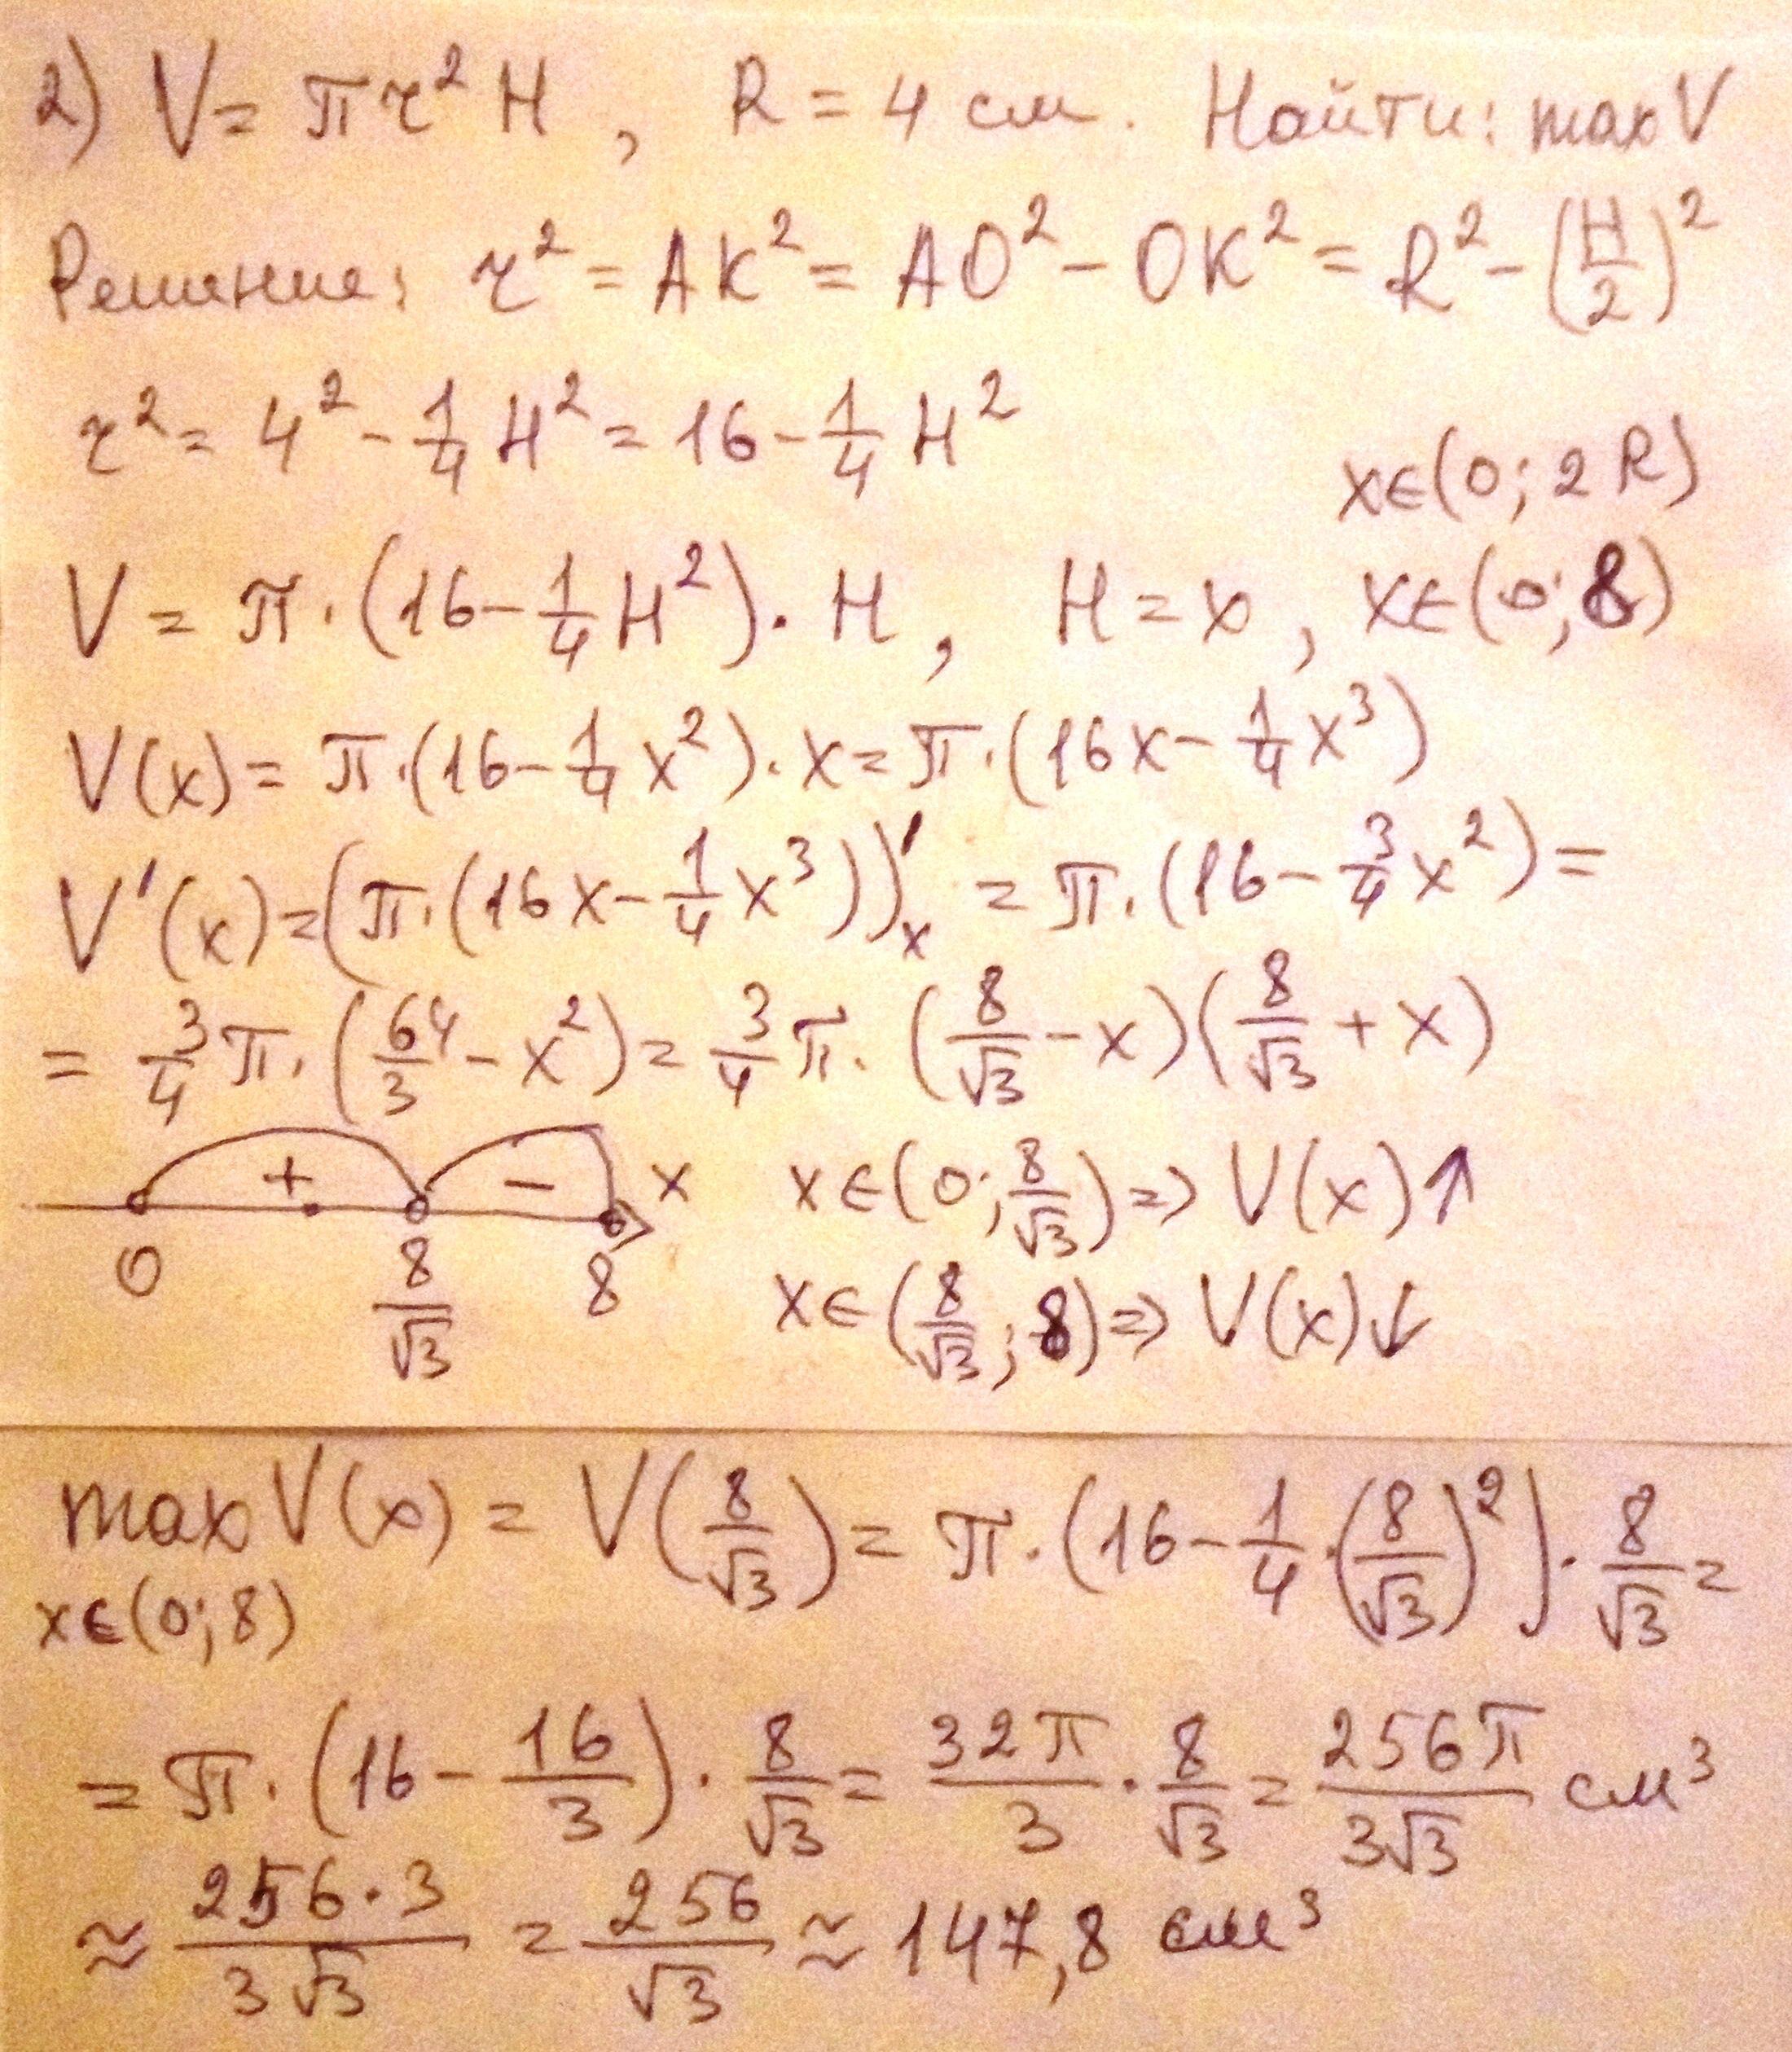 2) V = πr² H , R = 4 см. Найти: max V
Решение: r² = AK² = AO² - OK² = R² - (H/2)²
r² = 4² - 1/4 H² = 16 - 1/4 H²
x∈(0; 2R)
V = π·(16 - 1/4 H²)·H , H = x , x∈(0; 8)
V(x) = π·(16 - 1/4 x²)·x = π·(16x - 1/4 x³)
V'(x) = (π·(16x - 1/4 x³))'ₓ = π·(16 - 3/4 x²) =
= 3/4 π·(64/3 - x²) = 3/4 π·(8/√3 - x)(8/√3 + x)
+ - x x∈(0; 8/√3) => V(x)↑
0 8/√3 8 x∈(8/√3; 8) => V(x)↓
max V(x) = V(8/√3) = π·(16 - 1/4·(8/√3)²)·8/√3 =
x∈(0; 8)
= π·(16 - 16/3)·8/√3 = 32π/3 · 8/√3 = 256π/3√3 см³
≈ 256·3/3√3 = 256/√3 ≈ 147,8 см³